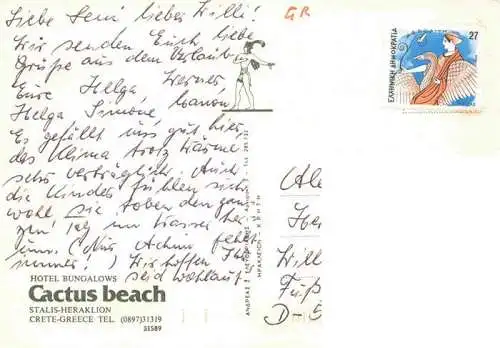 Liebe Leni, lieber Willi!
Wir senden Euch liebe
Grüße aus dem Urlaub
Eure Helga Werner,
Helga Simone, Manon
Es gefällt uns gut hier
das Klima trotz Wärme
sehr verträglich. Auch
die Kinder fühlen sich
wohl sie toben den gan
zen Tag im Wasser her
um. (Nur Achim fehlt
immer!) Wir hoffen Ihr
seid wohlauf
HOTEL BUNGALOWS
Cactus beach
STALIS-HERAKLION
CRETE-GREECE TEL. (0897)31319
31589
GR
27
ΕΛΛΗΝΙΚΗ ΔΗΜΟΚΡΑΤΙΑ
ΗΡΑΚΛΕΙΟΝ ΚΡΗΤΗ
Wil
D-5